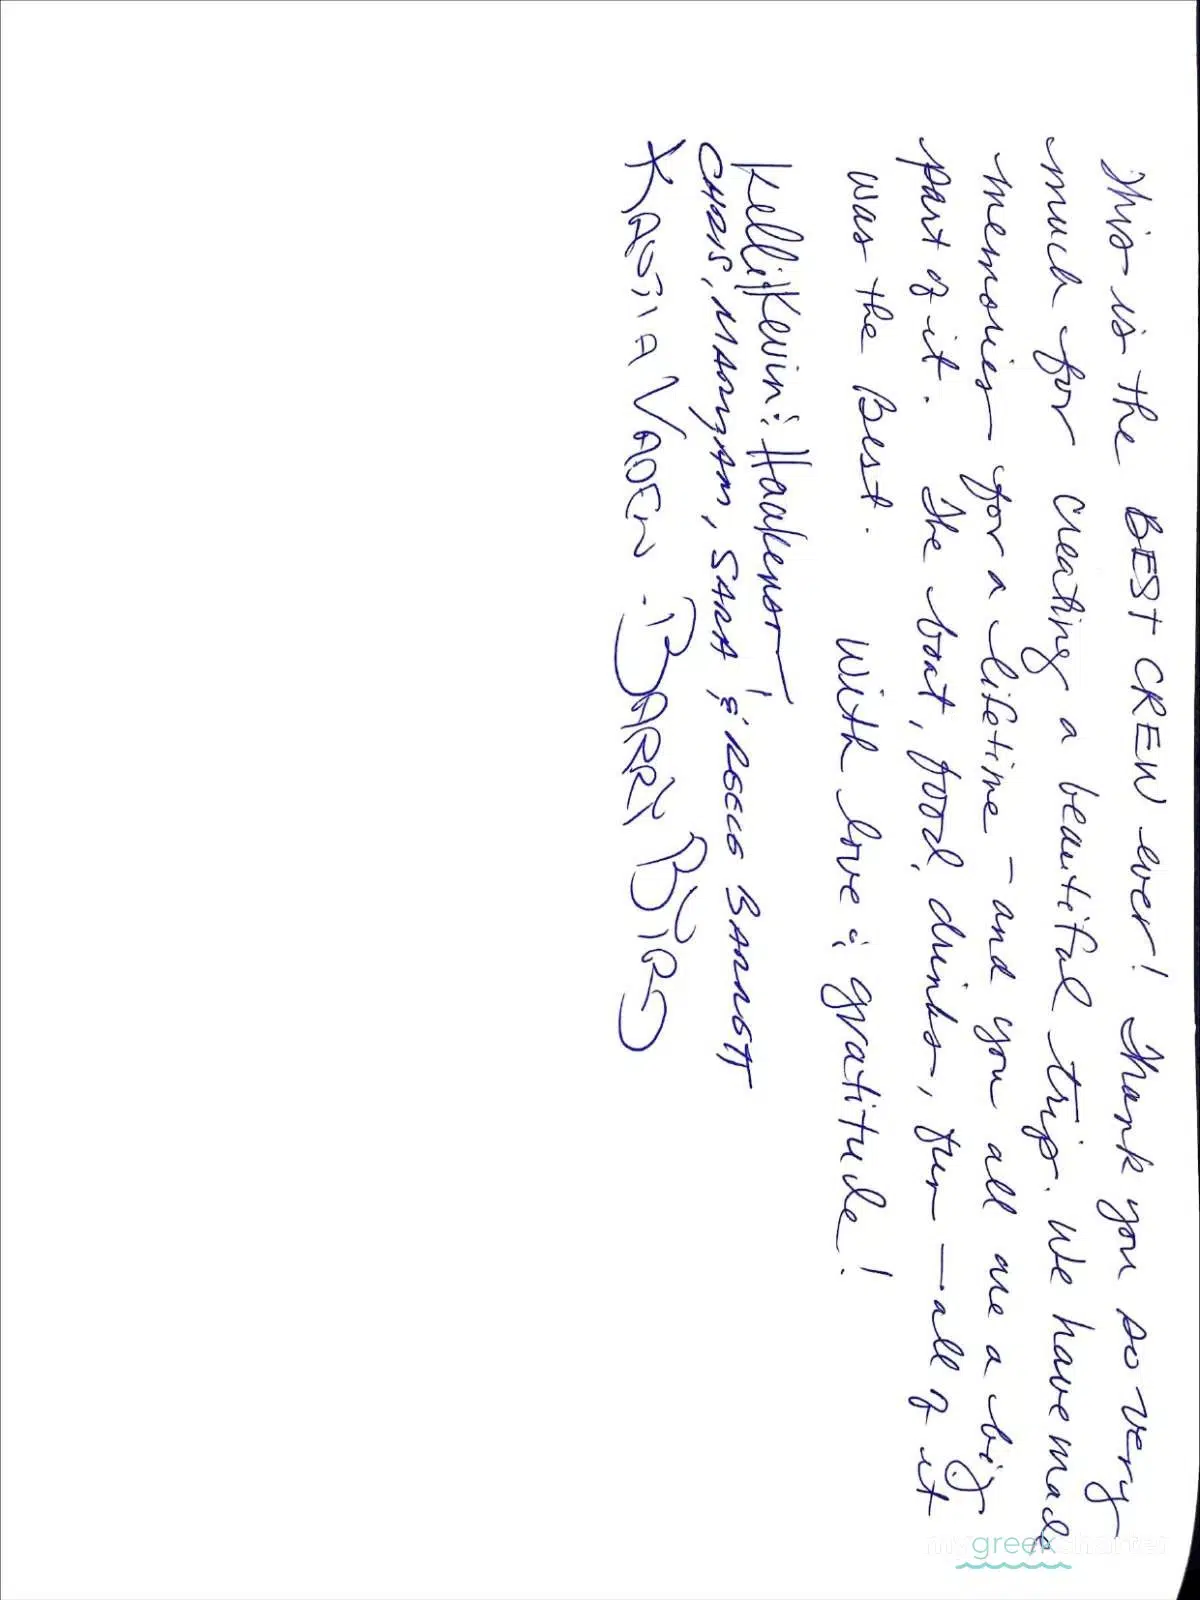 This is the BEST CREW ever! Thank you so very
much for creating a beautiful trip. We have made
memories for a lifetime – and you all are a big
part of it. The boat, food, drinks, fun – all of it
was the Best. With love & gratitude!
Kelli & Kevin Haakenson
CHRIS, MARYAM, SARA & REECE BARRETT
VADEN. BARRY BYRD
mygreekcharter